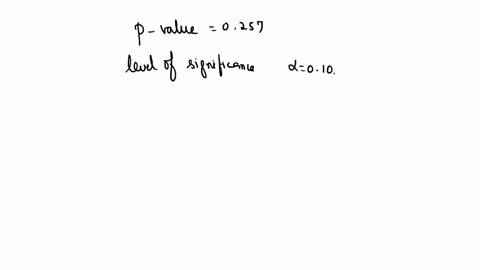 p-value = 0.257
level of significance α=0.10.